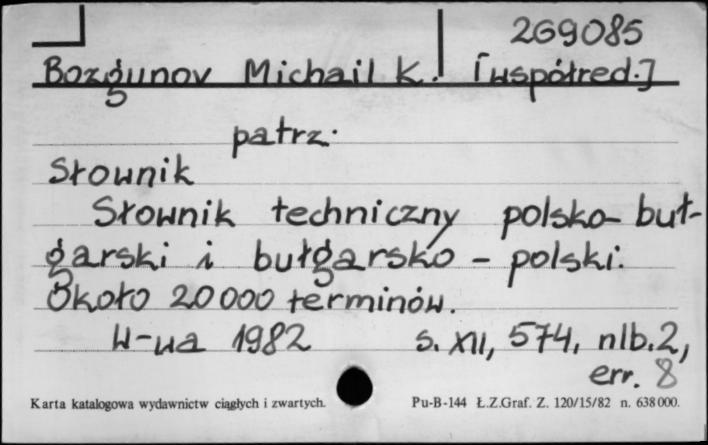 269085
Bozgunov Michail K. [współred.]
patrz:
Słownik
Słownik techniczny polsko-buł-
garski i bułgarsko-polski.
Około 20000 terminów.
W-wa 1982 s. XII, 574, nlb. 2,
err. 8
Karta katalogowa wydawnictw ciągłych i zwartych. Pu-B-144 Ł.Z.Graf. Z. 120/15/82 n. 638000.